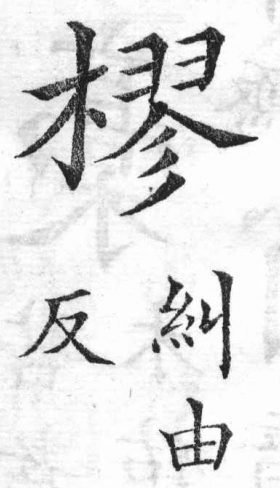 樛
糾由
反